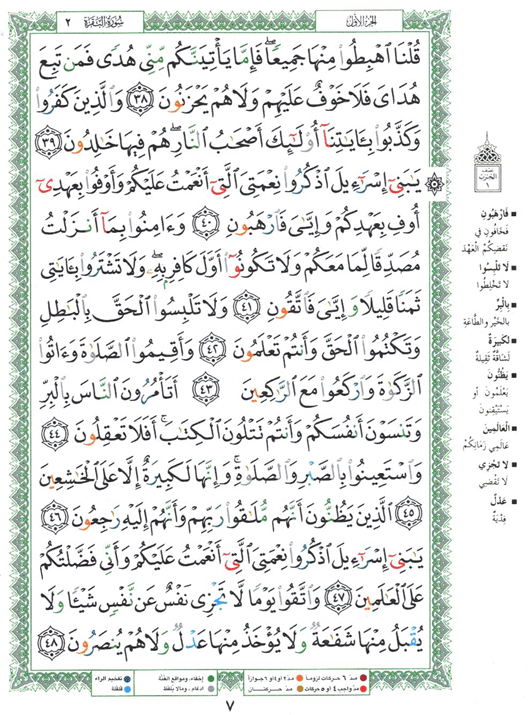 الجزء الأول
سورة البقرة ٢
قُلْنَا ٱهْبِطُوا۟ مِنْهَا جَمِيعًۭا ۖ فَإِمَّا يَأْتِيَنَّكُم مِّنِّى هُدًۭى فَمَن تَبِعَ
هُدَاىَ فَلَا خَوْفٌ عَلَيْهِمْ وَلَا هُمْ يَحْزَنُونَ ٣٨ وَٱلَّذِينَ كَفَرُوا۟
وَكَذَّبُوا۟ بِـَٔايَـٰتِنَآ أُو۟لَـٰٓئِكَ أَصْحَـٰبُ ٱلنَّارِ ۖ هُمْ فِيهَا خَـٰلِدُونَ ٣٩
يَـٰبَنِىٓ إِسْرَٰٓءِيلَ ٱذْكُرُوا۟ نِعْمَتِىَ ٱلَّتِىٓ أَنْعَمْتُ عَلَيْكُمْ وَأَوْفُوا۟ بِعَهْدِىٓ
أُوفِ بِعَهْدِكُمْ وَإِيَّـٰىَ فَٱرْهَبُونِ ٤٠ وَءَامِنُوا۟ بِمَآ أَنزَلْتُ
مُصَدِّقًۭا لِّمَا مَعَكُمْ وَلَا تَكُونُوٓا۟ أَوَّلَ كَافِرٍۭ بِهِۦ ۖ وَلَا تَشْتَرُوا۟ بِـَٔايَـٰتِى
ثَمَنًۭا قَلِيلًۭا وَإِيَّـٰىَ فَٱتَّقُونِ ٤١ وَلَا تَلْبِسُوا۟ ٱلْحَقَّ بِٱلْبَـٰطِلِ
وَتَكْتُمُوا۟ ٱلْحَقَّ وَأَنتُمْ تَعْلَمُونَ ٤٢ وَأَقِيمُوا۟ ٱلصَّلَوٰةَ وَءَاتُوا۟
ٱلزَّكَوٰةَ وَٱرْكَعُوا۟ مَعَ ٱلرَّٰكِعِينَ ٤٣ أَتَأْمُرُونَ ٱلنَّاسَ بِٱلْبِرِّ
وَتَنسَوْنَ أَنفُسَكُمْ وَأَنتُمْ تَتْلُونَ ٱلْكِتَـٰبَ ۚ أَفَلَا تَعْقِلُونَ ٤٤
وَٱسْتَعِينُوا۟ بِٱلصَّبْرِ وَٱلصَّلَوٰةِ ۚ وَإِنَّهَا لَكَبِيرَةٌ إِلَّا عَلَى ٱلْخَـٰشِعِينَ
٤٥ ٱلَّذِينَ يَظُنُّونَ أَنَّهُم مُّلَـٰقُوا۟ رَبِّهِمْ وَأَنَّهُمْ إِلَيْهِ رَٰجِعُونَ ٤٦
يَـٰبَنِىٓ إِسْرَٰٓءِيلَ ٱذْكُرُوا۟ نِعْمَتِىَ ٱلَّتِىٓ أَنْعَمْتُ عَلَيْكُمْ وَأَنِّى فَضَّلْتُكُمْ
عَلَى ٱلْعَـٰلَمِينَ ٤٧ وَٱتَّقُوا۟ يَوْمًۭا لَّا تَجْزِى نَفْسٌ عَن نَّفْسٍۢ شَيْـًۭٔا وَلَا
يُقْبَلُ مِنْهَا شَفَـٰعَةٌۭ وَلَا يُؤْخَذُ مِنْهَا عَدْلٌۭ وَلَا هُمْ يُنصَرُونَ ٤٨
نصف
الحزب
١
فَارْهَبُونِ
فَخَافُونِ فِي
نَقْضِكُمُ الْعَهْدَ
لَا تَلْبِسُوا
لَا تَخْلِطُوا
بِالْبِرِّ
بِالْخَيْرِ وَالطَّاعَةِ
لَكَبِيرَةٌ
لَشَاقَّةٌ ثَقِيلَةٌ
يَظُنُّونَ
يَعْلَمُونَ أَوْ
يَسْتَيْقِنُونَ
الْعَالَمِينَ
عَالَمِي زَمَانِكُمْ
لَا تَجْزِي
لَا تَقْضِي
عَدْلٌ
فِدْيَةٌ
مد ٦ حركات لزوماً
مد ٢ أو ٤ أو ٦ جوازاً
إخفاء، ومواقع الغنة
تفخيم الراء
مد واجب ٤ أو ٥ حركات
مد حركتان
ادغام، ومالا يلفظ
قلقلة
٧